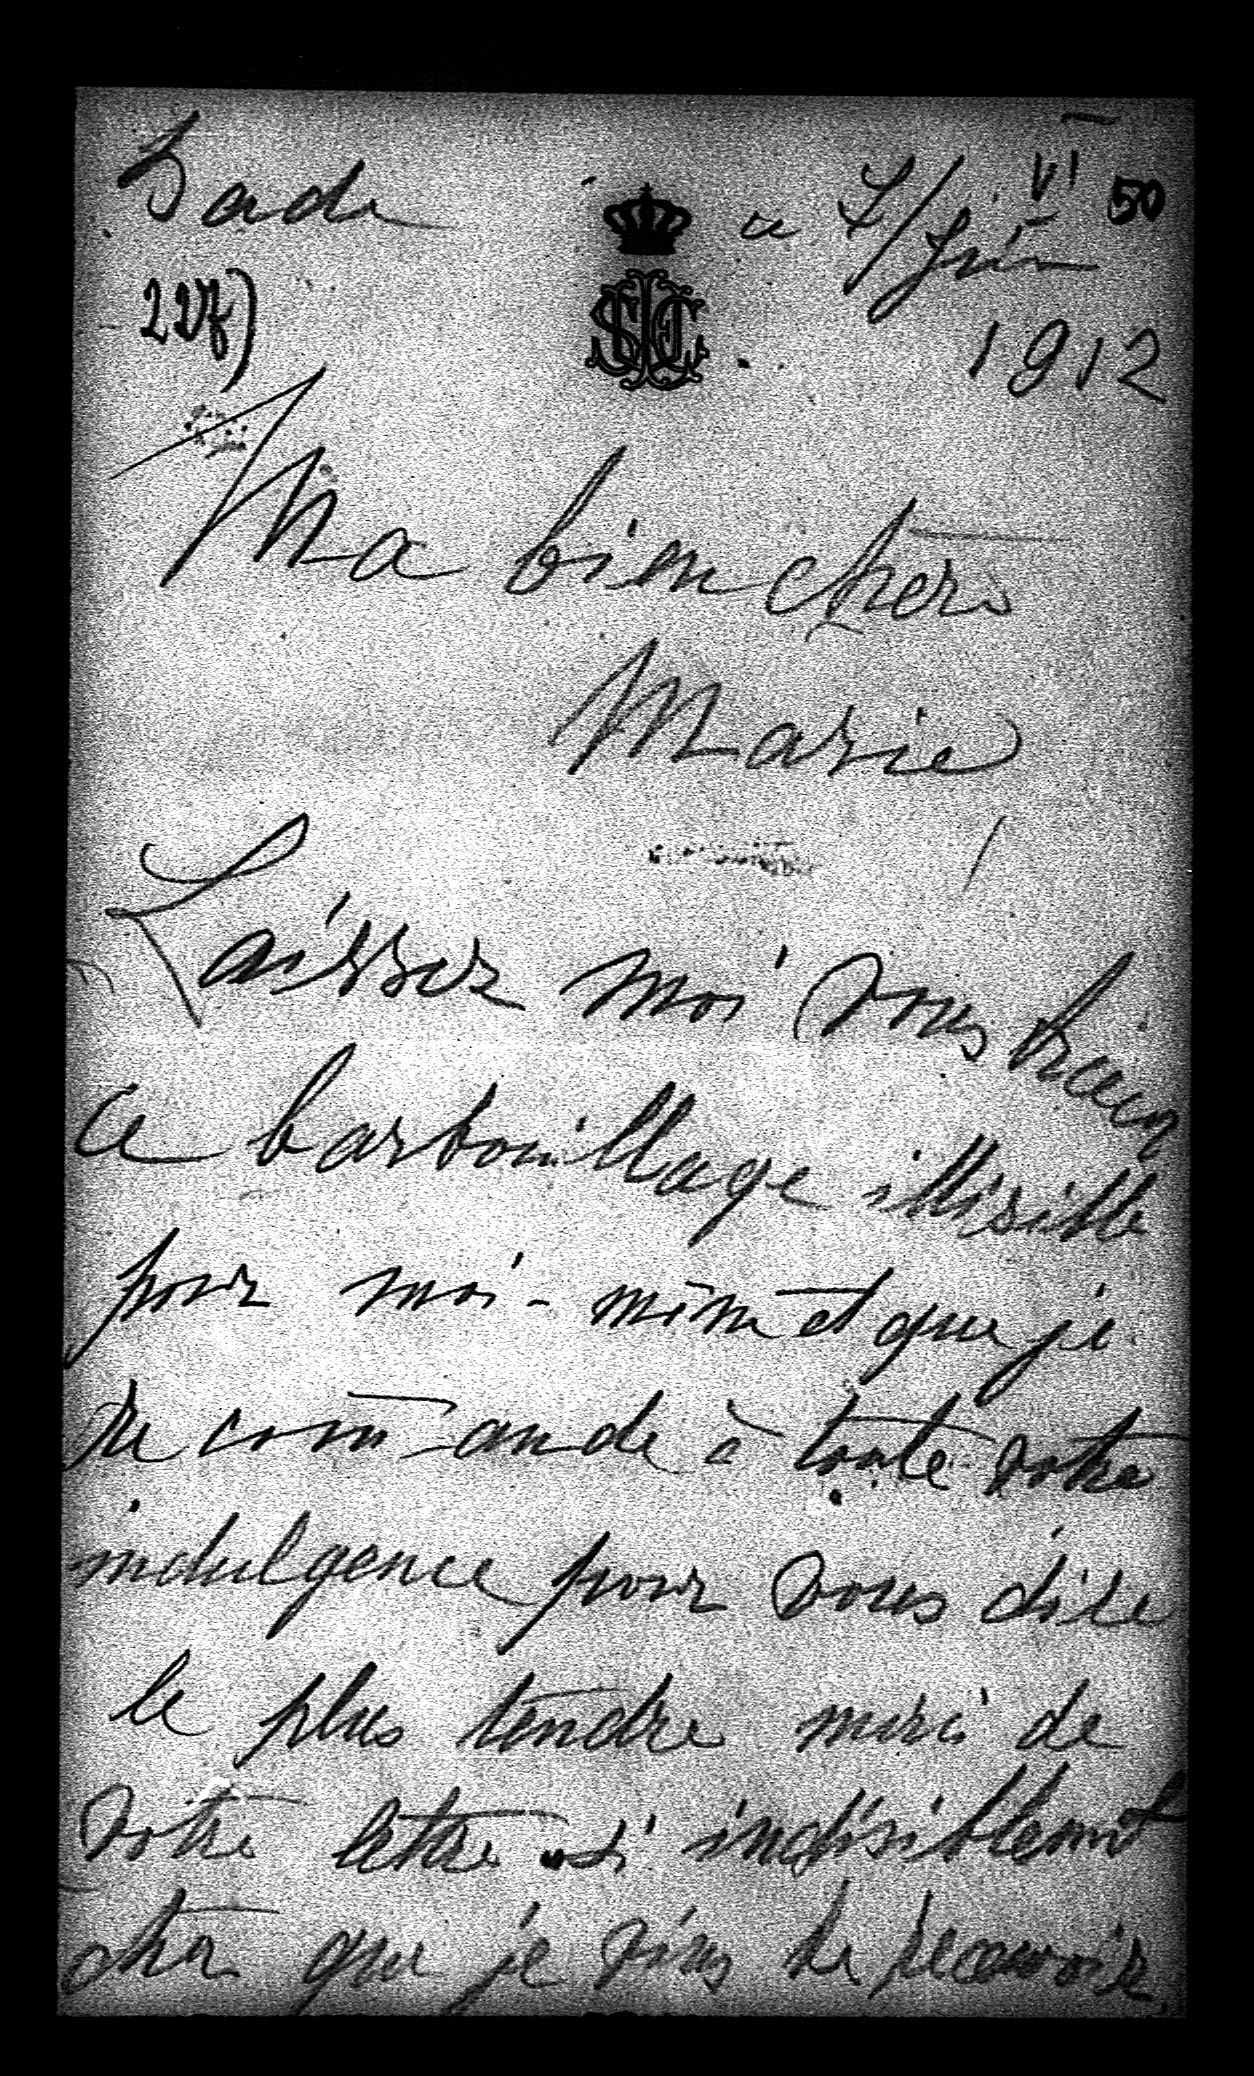 Bade ce 7/Juin VI 50
227) 1912
Ma bien chère
Marie
Laissez moi vous
ce barbouillage illisible
pour moi-même et que je
recommande à toute votre
indulgence pour vous dire
le plus tendre merci de
votre lettre si indisiblement
cher que je viens de recevoir,